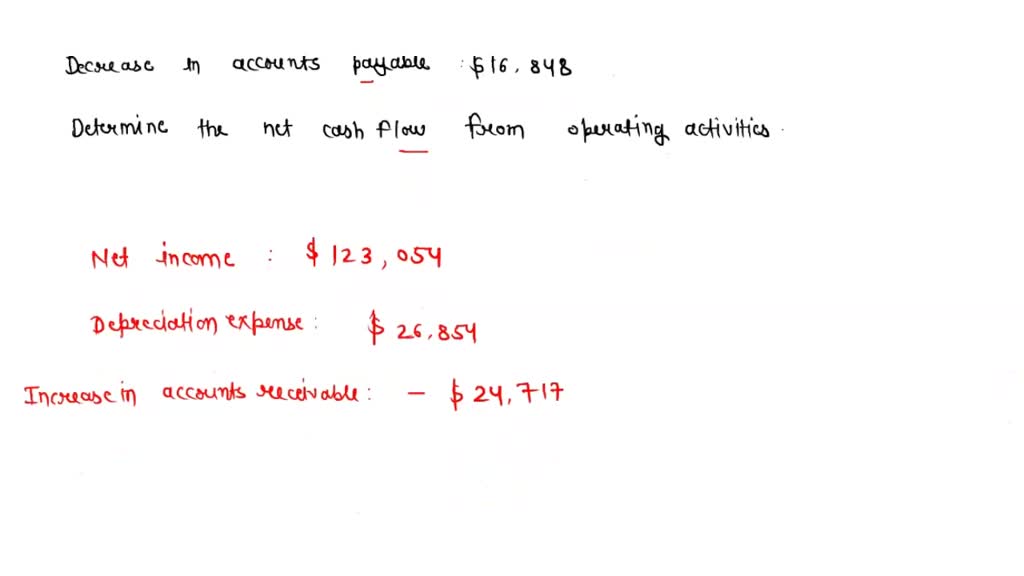 Decrease in accounts payable : $16,848
Determine the net cash flow from operating activities.
Net income : $ 123,054
Depreciation expense : $ 26,854
Increase in accounts receivable : - $ 24,717